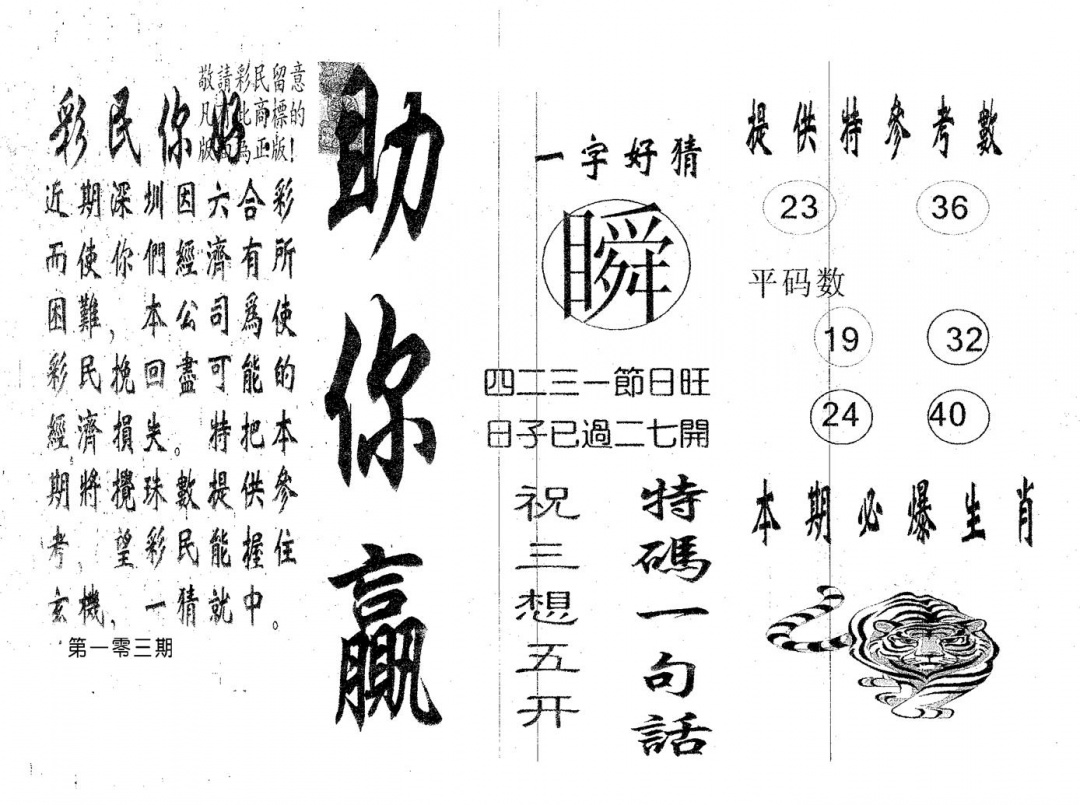 敬請彩民留意
凡有此商標的
版面為正版!
彩民你好
近期深圳因六合彩
而使你們經濟有所
困難,本公司爲使
彩民挽回盡可能的
經濟損失。特把本
期將攪珠數提供參
考,望彩民能握住
玄機,一猜就中。
第一零三期
助你贏
一字好猜
瞬
四二三一節日旺
日子已過二七開
特碼一句話
祝三想五开
提供特參考數
23 36
平码数
19 32
24 40
本期必爆生肖